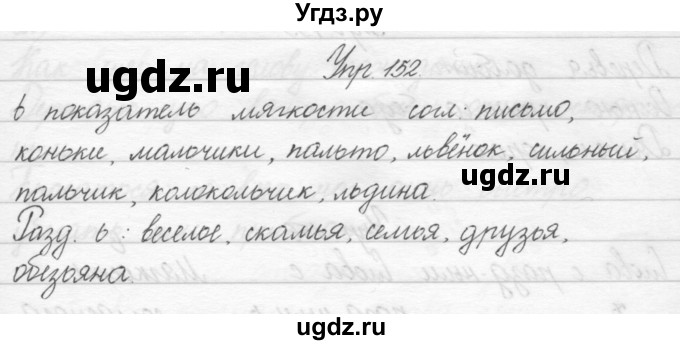 Угдз.ру
Упр 152.
ь показатель мягкости согл: письмо,
коньки, мальчики, пальто, львёнок, сильный,
пальчик, колокольчик, льдина.
Разд. ь: веселое, скамья, семья, друзья,
обезьяна
ugdz.ru
ugdz.ru
ugdz.ru